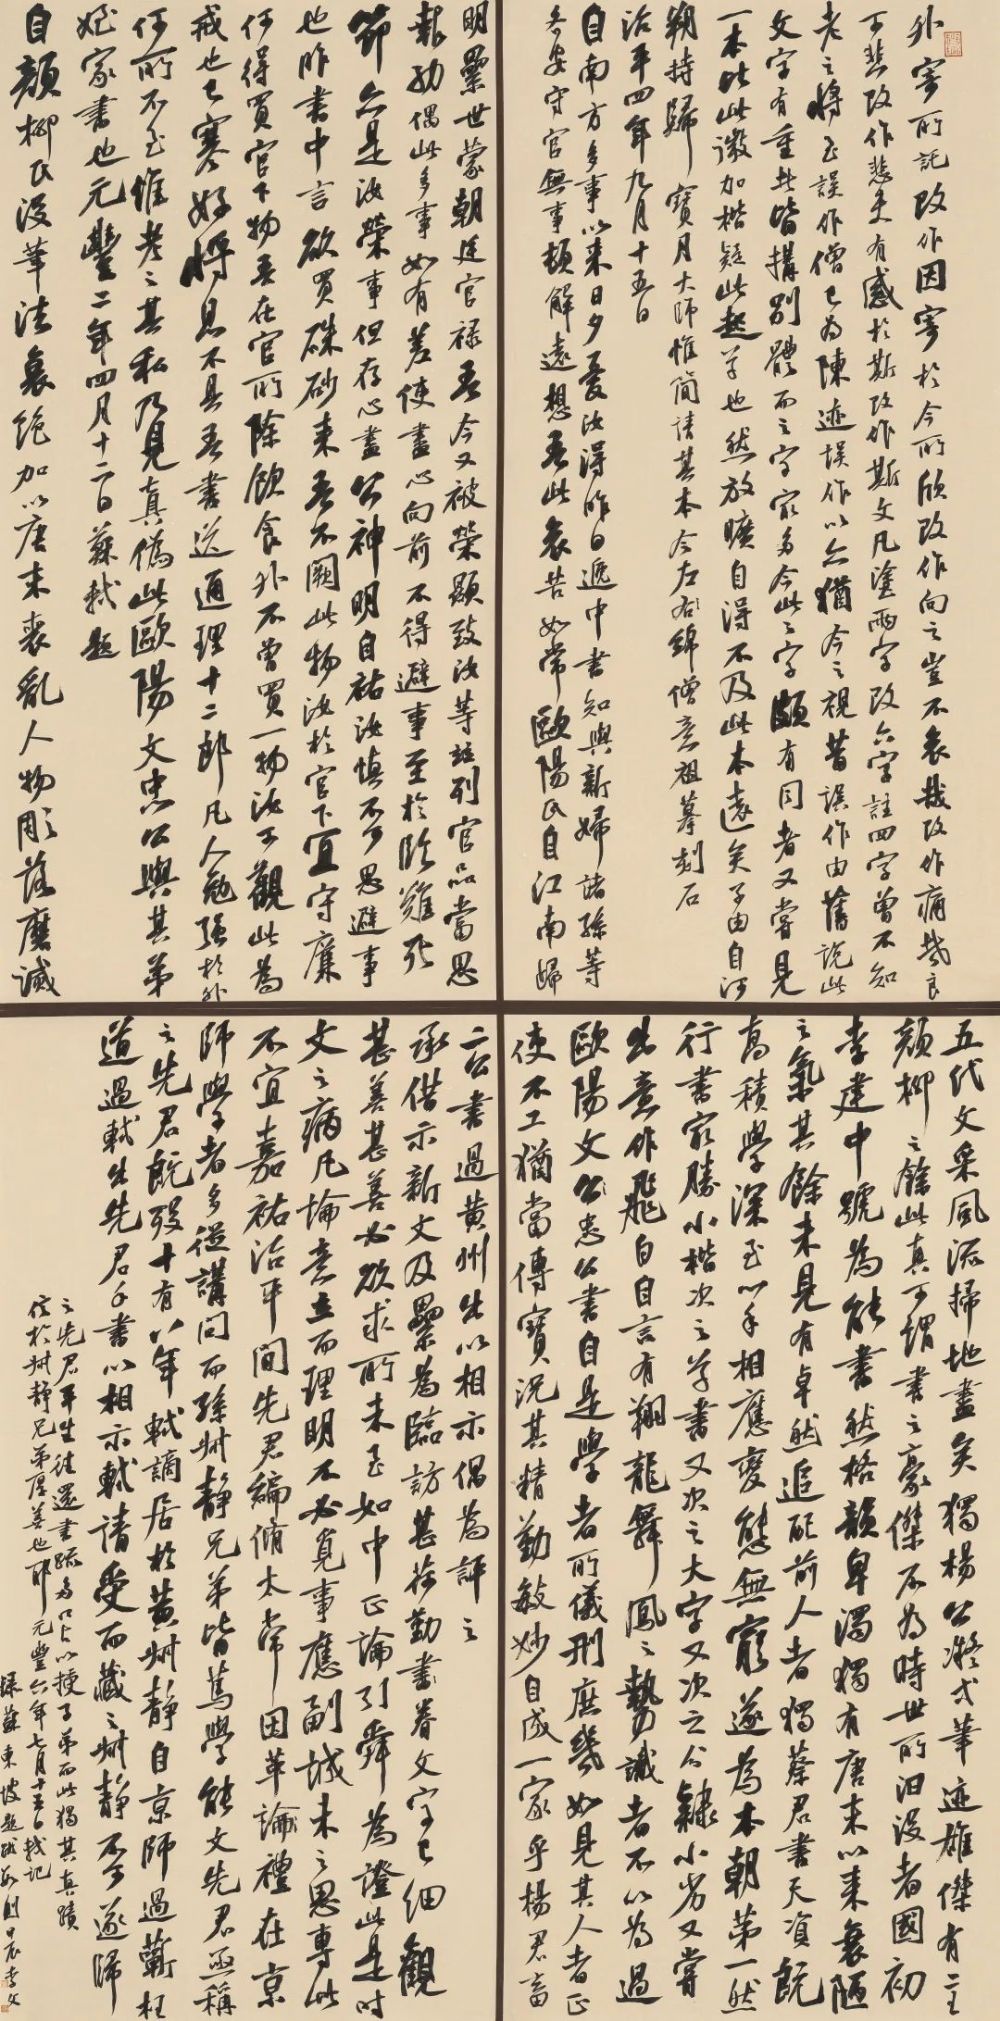 外寄所託改作因寄於今所欣改作向之豈不哀哉改作痛哉良
可悲改作悲夫有感於斯改作斯文凡塗兩字改六字註四字曾不知
老之將至誤作僧已為陳迹誤作以亦猶今之視昔誤作由舊說此
文字有重者皆構別體而之字最多今此之字頗有同者又嘗見
一本比此微加楷疑此起草也然放曠自得不及此本遠矣子由自河
朔持歸寶月大師惟簡請其本令左右綿僧意祖摹刻石
治平四年九月十五日
自南方多事以來日夕憂汝得昨日遞中書知與新婦諸孫等
各安守官無事頓解遠想吾此哀苦如常歐陽氏自江南歸
明纍世蒙朝廷官祿吾今又被榮顯致汝等並列官品當思
報効偶此多事如有差使盡心向前不得避事至於臨難死
節亦是汝榮事但存心盡公神明自祐汝慎不可思避事
也昨書中言欲買硃砂來吾不闕此物汝於官下宜守廉
何得買官下物吾在官所除飲食外不曾買一物汝可觀此為
戒也已寒好將息不具吾書送通理十二郎凡人勉强於外
何所不至惟考之其私乃見真偽此歐陽文忠公與其弟
姪家書也元豐二年四月十二日蘇軾題
自顏柳氏沒筆法衰絕加以唐末喪亂人物彫落磨滅
五代文采風流掃地盡矣獨楊公凝式筆迹雄傑有二王
顏柳之餘此真可謂書之豪傑不為時世所汩沒者國初
李建中號為能書然格韻卑濁猶有唐末以來衰陋
之氣其餘未見有卓然追配前人者獨蔡君書天資既
高積學深至心手相應變態無窮遂為本朝第一然
行書最勝小楷次之草書又次之大字又次之分隸小劣又嘗
出意作飛白自言有翔龍舞鳳之勢識者不以為過
歐陽文公忠公書自是學者所儀刑庶幾如見其人者正
使不工猶當傳寶況其精勤敏妙自成一家乎楊君畜
二公書過黃州出以相示偶為評之
承借示新文及纍為臨訪甚荷勤書眷文字已細觀
甚善甚善必欲求所未至如中正論引舜為證此是時
文之病凡論意立而理明不必覓事應副誠未之思專此
不宜嘉祐治平間先君編脩太常因革論禮在京
師學者多從講問而孫叔靜兄弟皆篤學能文先君亟稱
之先君既歿十有八年軾謫居於黃州靜自京師過蘄枉
道過軾出先君手書以相示軾請受而藏之叔靜不可遂歸
之先君平生往還書疏多口占以授子弟而此獨其真蹟
信於叔靜兄弟厚善也耶元豐六年七月十五日軾記
録蘇東坡題跋數則甲辰李文